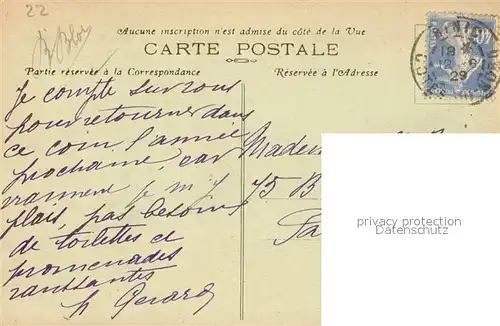 22
Aucune inscription n'est admise du côté de la Vue
CARTE POSTALE
Partie réservée à la Correspondance
Réservée à l'Adresse
18
29
Je compte sur vous
pour retourner dans
ce coin l'année
prochaine, car
vraiment je m'y
plais, pas besoin
de toilettes et
promenades
Gerard
75 B
privacy protection
Datenschutz